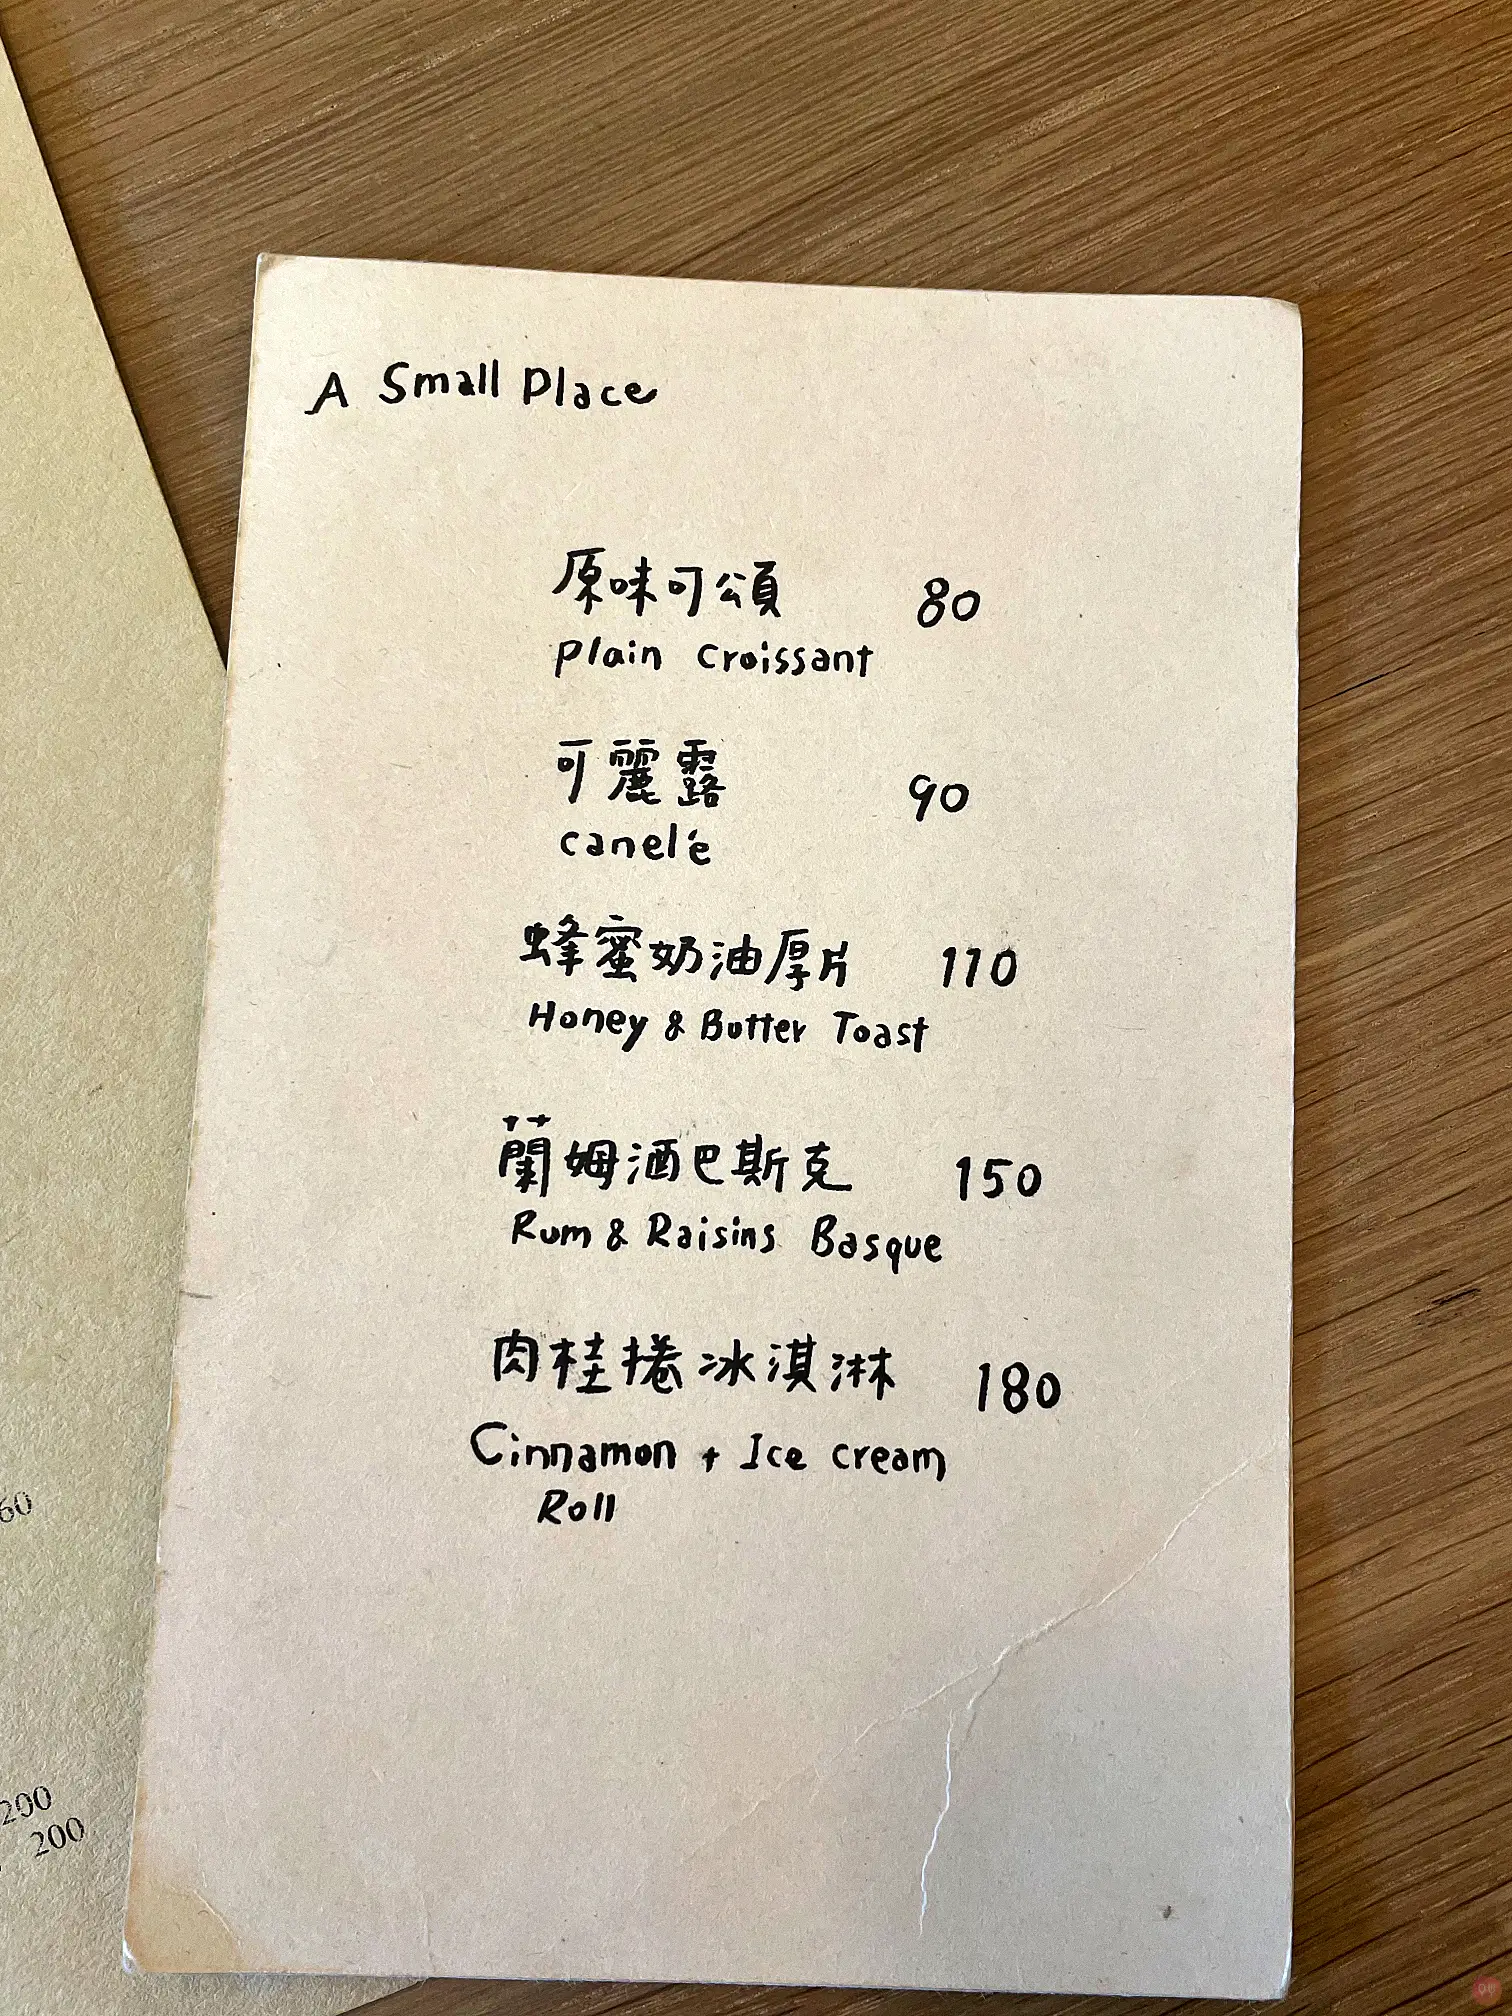 A Small Place
原味可頌 80
Plain Croissant
可麗露 90
canelé
蜂蜜奶油厚片 110
Honey & Butter Toast
蘭姆酒巴斯克 150
Rum & Raisins Basque
肉桂捲冰淇淋 180
Cinnamon + Ice cream
Roll
60
200
200